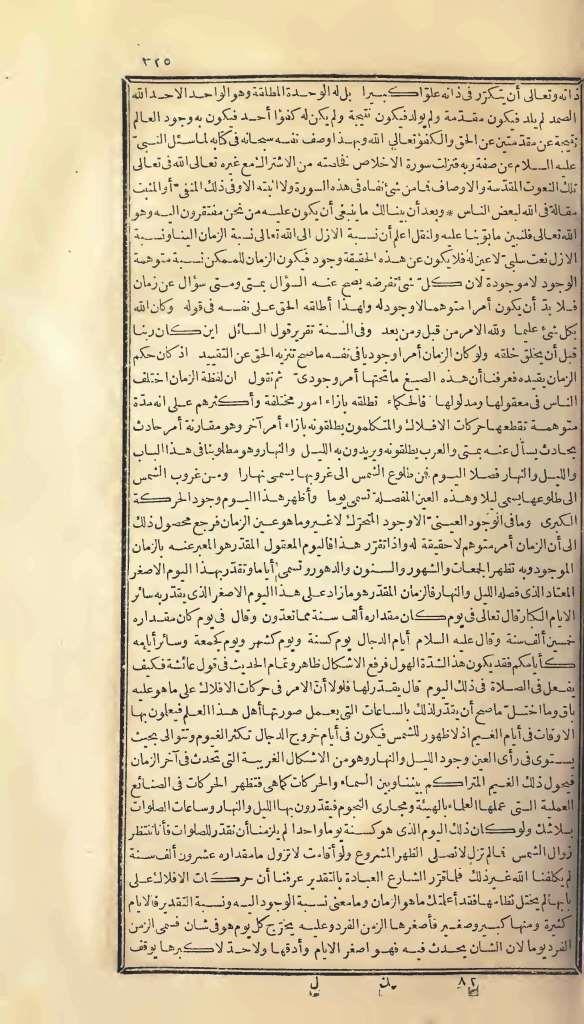 ٣٢٥
ذاته وتعالى أن يتكرر في ذاته علوا كبيرا بل له الوحدة المطلقة وهو الواحد الاحد الله
الصمد لم يلد فيكون مقدّمة ولم يولد فيكون نتيجة ولم يكن له كفوا أحد فيكون به وجود العالم
نتيجة عن مقدمتين عن الحق والكفؤ تعالى الله وبهذا وصف نفسه سبحانه في كتابه لما سئل النبيّ
عليه السلام عن صفة ربه فنزلت سورة الاخلاص تخلصت من الاشتراك مع غيره تعالى الله في تعالى
تلك النعوت المقدسة والاوصاف فما من شئ نفاه في هذه السورة ولا اثبته الا وذلك المنفيّ أو المثبت
مقالة في الله لبعض الناس * وبعد أن بينا لك ما ينبغي أن يكون عليه من نحن مفتقرون اليه وهو
الله تعالى فلنبين ما بوّبنا عليه ولنقل اعلم أن نسبة الازل الى الله تعالى نسبة الزمان الينا ونسبة
الازل نعت سلبيّ لا عين له فلا يكون عن هذه الحقيقة وجود فيكون الزمان للممكن نسبة متوهمة
الوجود لا موجودة لان كل شئ تفرضه يصح عنه السؤال بمتى ومتى سؤال عن زمان
فلا بدّ أن يكون أمرا متوهما لا وجود له ولهذا أطلقه الحق على نفسه في قوله وكان الله
بكل شئ عليما ولله الامر من قبل ومن بعد وفي السنة تقرير قول السائل اين كان ربنا
قبل أن يخلق خلقه ولو كان الزمان أمرا وجوديا في نفسه ما صح تنزيه الحق عن التقييد اذ كان حكم
الزمان يقيده فعرفنا أن هذه الصيغ ما تحتها أمر وجوديّ ثم نقول ان لفظة الزمان اختلف
الناس في معقولها ومدلولها فالحكماء تطلقه بازاء امور مختلفة وأكثرهم على انه مدّة
متوهمة تقطعها حركات الافلاك والمتكلمون يطلقونه بازاء أمر آخر وهو مقارنة أمر حادث
بحادث يسأل عنه بمتى والعرب يطلقونه ويريدون به الليل والنهار وهو مطلوبنا في هذا الباب
والليل والنهار فصلا اليوم فمن طلوع الشمس الى غروبها يسمى نهارا ومن غروب الشمس
الى طلوعها يسمى ليلا وهذه العين المفصلة تسمى يوما وأظهر هذا اليوم وجود الحركة
الكبرى وما في الوجود العينيّ الا وجود المتحرّك لا غير وما هو عين الزمان فرجع محصول ذلك
الى أن الزمان أمر متوهم لا حقيقة له واذا تقرّر هذا فاليوم المعقول المقدّر هو المعبر عنه بالزمان
الموجود وبه تظهر الجمعات والشهور والسنون والدهور وتسمى أياما وتقدّر بهذا اليوم الاصغر
المعتاد الذي فصله الليل والنهار فالزمان المقدّر هو ما زاد على هذا اليوم الاصغر الذي يقدّر به سائر
الايام الكبار قال تعالى في يوم كان مقداره ألف سنة مما تعدّون وقال في يوم كان مقداره
خمسين ألف سنة وقال عليه السلام أيام الدجال يوم كسنة ويوم كشهر ويوم كجمعة وسائر أيامه
كأيامكم فقد يكون هذا لشدّة الهول فرفع الاشكال ظاهر وتمام الحديث في قول عائشة فكيف
يفعل في الصلاة في ذلك اليوم قال يقدّر لها فلولا أن الامر في حركات الافلاك على ما هو عليه
باق وما اختلّ ما صح أن يقدّر لذلك بالساعات التي يعمل صورتها أهل هذا العلم فيعلون بها
الاوقات في أيام الغيم اذ لا ظهور للشمس فيكون في أيام خروج الدجال تكثر الغيوم وتتوالى بحيث
يستوي في رأي العين وجود الليل والنهار وهو من الاشكال الغريبة التي تحدث في آخر الزمان
فيحول ذلك الغيم المتراكم بيننا وبين السماء والحركات كما هي فتظهر الحركات في الصنائع
العملية التي عملها العلماء بالهيئة ومجاري النجوم فيقدّرون بها الليل والنهار وساعات الصلوات
بلا شك ولو كان ذلك اليوم الذي هو كسنة يوما واحدا لم يلزمنا أن نقدّر للصلوات فأنا ننتظر
زوال الشمس فما لم تزل لا نصلي الظهر المشروع ولو أقامت لا تزول ما مقداره عشرون ألف سنة
لم يكلفنا الله غير ذلك فلما قرّر الشارع العبادة بالتقدير عرفنا أن حركات الافلاك على
بابها لم يختل نظامها فقد أعلمتك ما هو الزمان وما معنى نسبة الوجود اليه ونسبة التقدير فالايام
كثيرة ومنها كبير وصغير فأصغرها الزمن الفرد وعليه يخرج كل يوم هو في شان فسمى الزمن
الفرد يوما لان الشان يحدث فيه فهو اصغر الايام وأدقها ولا حدّ لاكبرها يوقف
٨٢